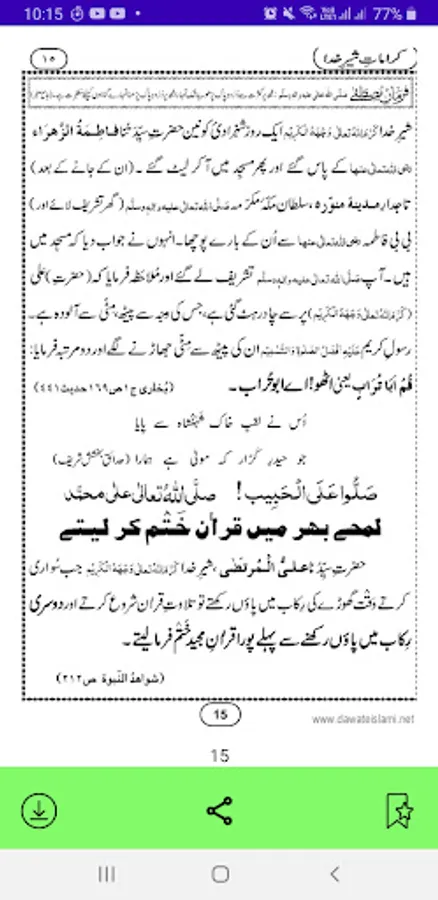 10:15
77%
کراماتِ شیرِ خدا
۱۵
فرمانِ مصطفےٰ صلی اللہ تعالیٰ علیہ والہ وسلم
شیرِ خدا کَرَّمَ اللہُ تَعَالٰی وَجْہَہُ الْکَرِیْم ایک روز شہزادیٔ کونین حضرتِ سیِّدَتُنا فاطِمَۃُ الزَّہراء
رضی اللہ تعالیٰ عنہا کے پاس گئے اور پھر مسجد میں آ کر لیٹ گئے ۔ (ان کے جانے کے بعد)
تاجدارِ مدینۂ منوّرہ، سلطانِ مکّۂ مکرّمہ صلی اللہ تعالیٰ علیہ والہ وسلم (گھر تشریف لائے اور)
بی بی فاطمہ رضی اللہ تعالیٰ عنہا سے اُن کے بارے پوچھا۔ انہوں نے جواب دیا کہ مسجد میں
ہیں ۔ آپ صلی اللہ تعالیٰ علیہ والہ وسلم تشریف لے گئے اور مُلاحَظہ فرمایا کہ (حضرتِ) علی
(کَرَّمَ اللہُ تَعَالٰی وَجْہَہُ الْکَرِیْم) پر سے چادر ہٹ گئی ہے، جس کی وجہ سے پیٹھ، مٹّی سے آلودہ ہے۔
رسولِ کریم عَلَیْہِ اَفْضَلُ الصَّلٰوۃِ وَالتَّسْلِیْم ان کی پیٹھ سے مٹّی جھاڑنے لگے اور دو مرتبہ فرمایا:
قُمْ اَبَا تُرَابٍ یعنی اٹھو! اے ابو تُراب ۔ (بُخاری ج۱ ص۱۶۹ حدیث ۴۴۱)
اُس نے لقبِ خاک شَہَنْشاہ سے پایا
جو حیدرِ کرّار کہ مولیٰ ہے ہمارا (حدائقِ بخشش شریف)
صَلُّوا عَلَی الْحَبِیب! صلَّی اللہُ تعالٰی علٰی محمَّد
لمحے بھر میں قراٰن ختْم کر لیتے
حضرتِ سیِّدُنا علیُّ الْمُرتَضٰی، شیرِ خدا کَرَّمَ اللہُ تَعَالٰی وَجْہَہُ الْکَرِیْم جب سُواری
کرتے وقت گھوڑے کی رِکاب میں پاؤں رکھتے تو تلاوتِ قراٰن شروع کرتے اور دوسری
رِکاب میں پاؤں رکھنے سے پہلے پورا قراٰنِ مجید ختْم فرما لیتے۔
(شواھدُ النُّبوۃ ص۲۱۲)
15
www.dawateislami.net
15